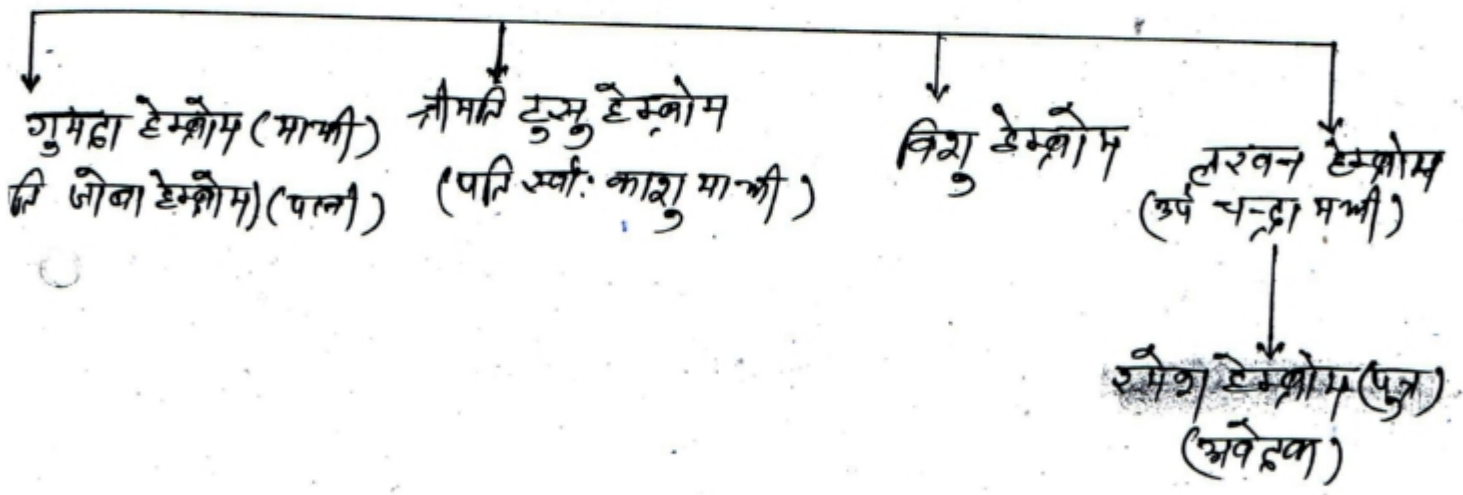 गुमदा हेम्ब्रोम (माझी)
ति जोबा हेम्ब्रोम) (पत्नी)
श्रीमति टुसु हेम्ब्रोम
(पति स्व: काशु माझी)
विशु हेम्ब्रोम
लखन हेम्ब्रोम
(उर्प चन्द्रा मझी)
रमेश हेम्ब्रोम (पुत्र)
(आवेदक)